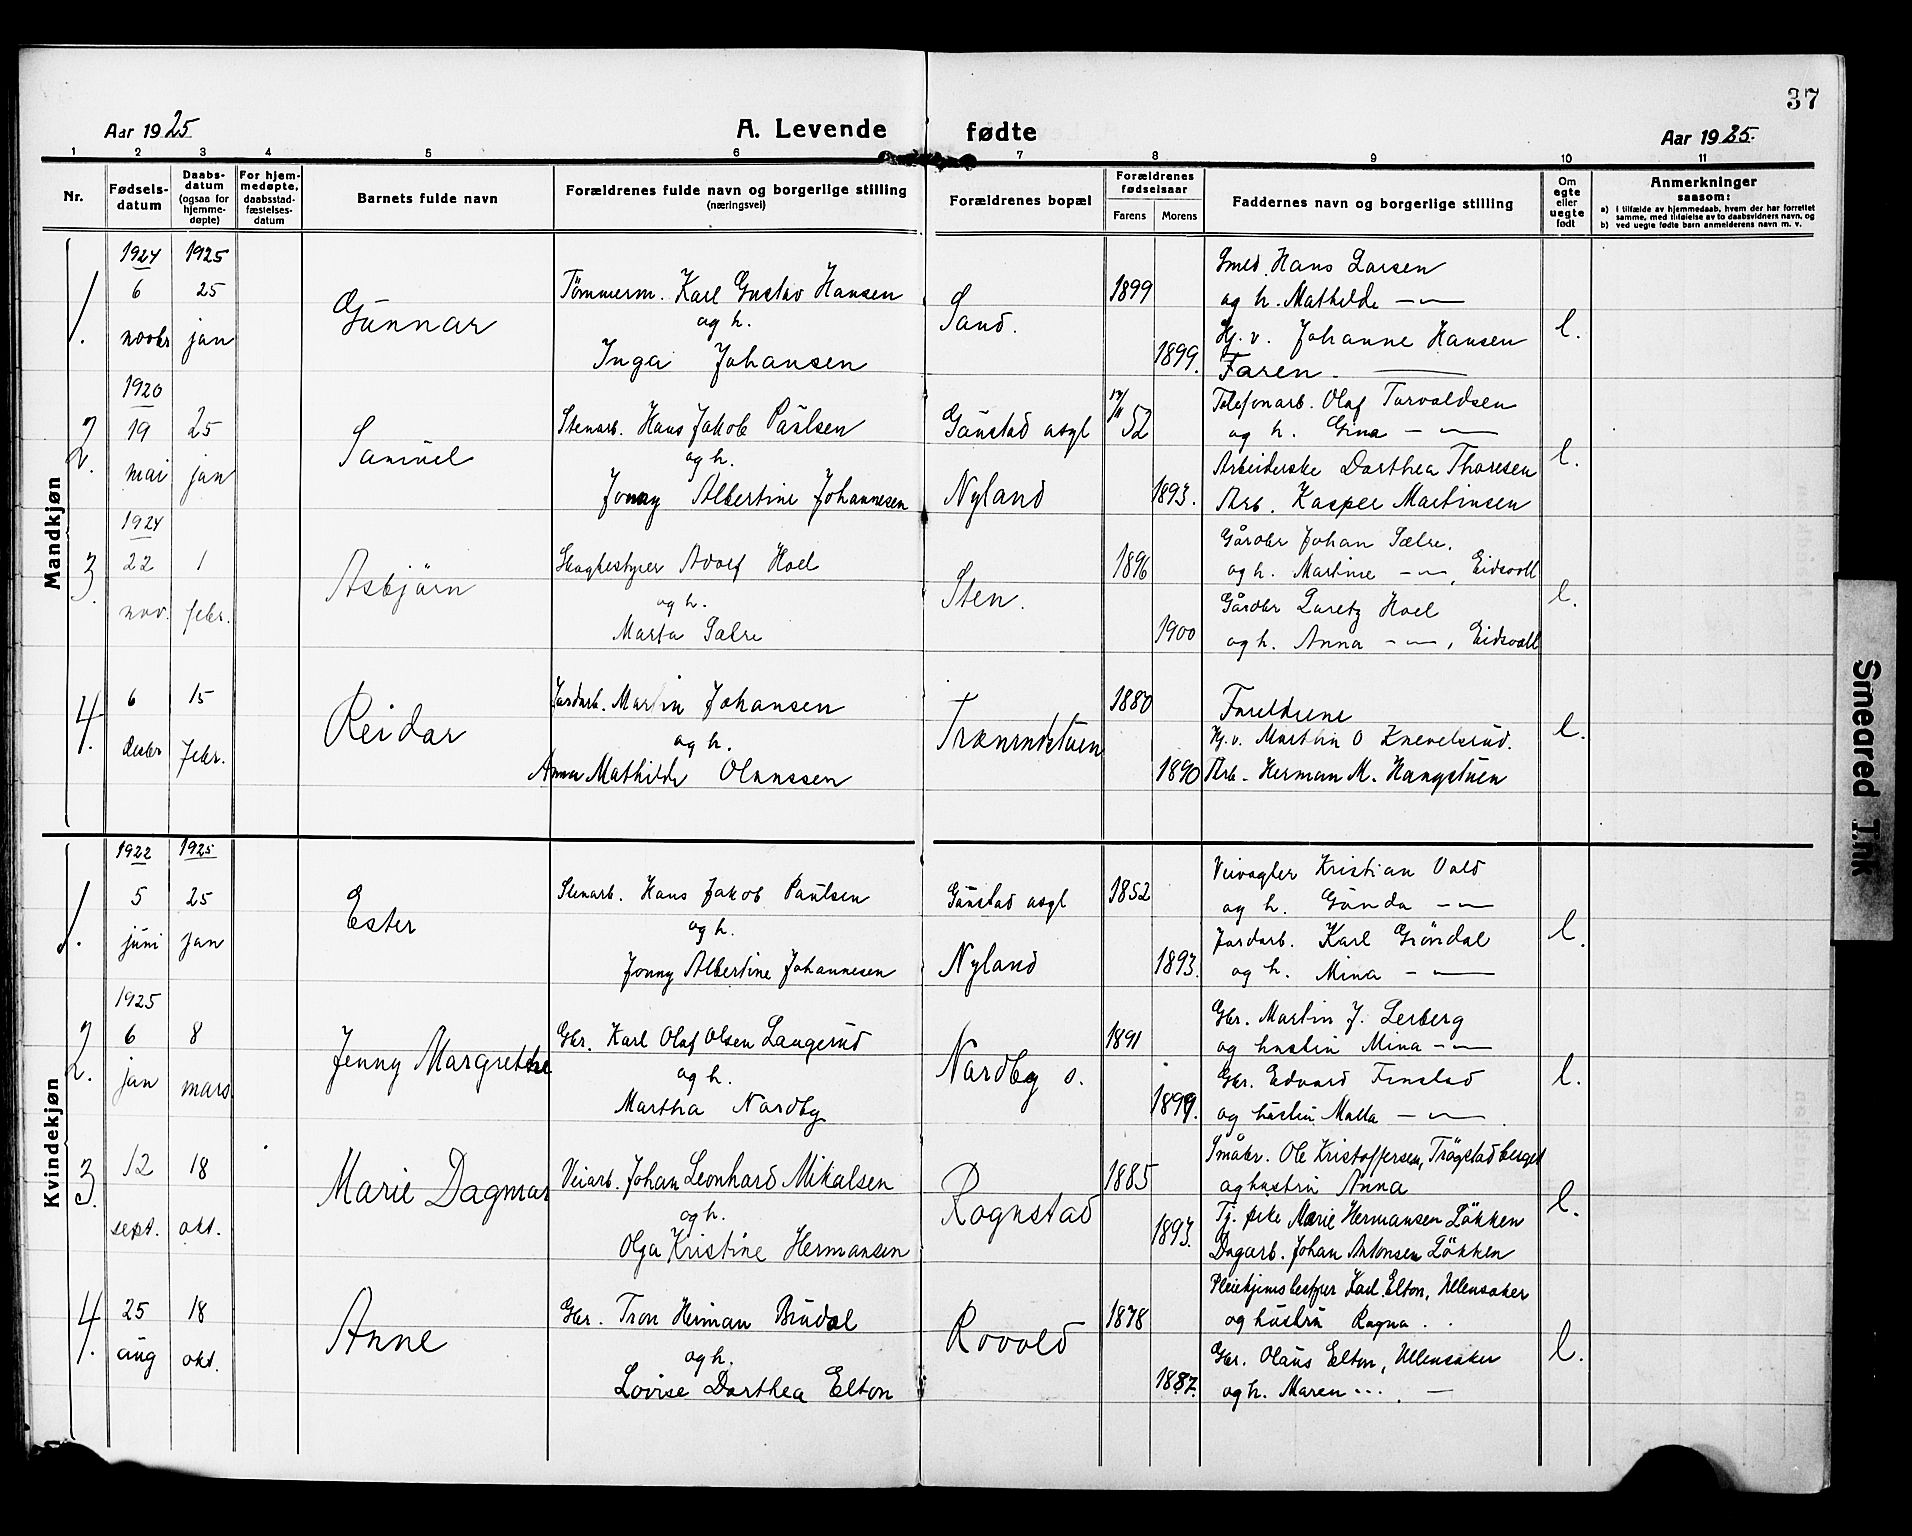 37
Aar 1925
A. Levende fødte
Aar 1925.
1 2 3 4 5 6 7 8 9 10 11
Nr.
Fødsels-
datum
Daabs-
datum
(ogsaa for
hjemme-
døpte)
For hjem-
medøpte,
daabsstad-
fæstelses-
datum
Barnets fulde navn
Forældrenes fulde navn og borgerlige stilling
(næringsvei)
Forældrenes bopæl
Forældrenes
fødselsaar
Farens Morens
Faddernes navn og borgerlige stilling
Om
egte
eller
uegte
født
Anmerkninger
saasom:
a) i tilfælde av hjemmedaab, hvem der har forrettet
samme, med tilføielse av to daabsvidners navn, og
b) ved uegte fødte barn anmelderens navn m. v.
Mandkjøn
1.
1924
6
novbr
1925
25
jan
Gunnar
Tömmerm. Karl Gustav Hansen
og h.
Inga Johansen
Sand.
1899
1899.
Smed. Hans Larsen
og h. Mathilde -〃-
Hj. v. Johanne Hansen
Faren.
l.
2.
1920
19
mai
25
jan
Samuel
Stenarb. Hans Jakob Paulsen
og h.
Jonny Albertine Johannesen
Gaustad asyl
Nyland
17/11 52
1893.
Telefonarb. Olaf Torvaldsen
og h. Gina -〃-
Arbeiderske Dorthea Thoresen
Arb. Kasper Martinsen
l.
3.
1924
22
nov.
1
febr.
Asbjörn
Skogbestyrer Adolf Hoel
og h.
Marta Sælre
Sten.
1896
1900
Gårdbr Johan Sælre.
og h. Martine -〃-, Eidsvoll
Gårdbr Laretz Hoel
og h. Anna -〃-, Eidsvoll
l.
4.
6
desbr
15
febr.
Reidar
Jordarb. Martin Johansen
og h.
Anna Mathilde Olaussen
1880
1890
Foreldrene
Hj. v. Marthin O Knevelsrud.
Arb. Herman M. Haugstuen
l.
Kvindekjøn
1.
1922
5
juni
1925
25
jan
Ester
Stenarb. Hans Jakob Paulsen
og h.
Jonny Albertine Johannesen
Gaustad asyl
Nyland
1852
1893.
Veivogter Kristian Vold
og h. Gunda -〃-
Jordarb. Karl Gröndal
og h. Mina -〃-
l.
2.
1925
6
jan
8
mars.
Jenny Margrethe
Gbr. Karl Olaf Olsen Laugerud
og h.
Martha Nordby
Nordby s.
1891
1899.
Gbr. Martin J. Lerberg
og hustru Mina -〃-
Gbr. Edvard Finstad
og hustru Malla -〃-
l.
3.
12
sept.
18
okt.
Marie Dagmar
Veiarb. Johan Leonhard Mikalsen
og h.
Olga Kristine Hermansen
Rognstad
1885
1893.
Småbr. Ole Kristoffersen, Trögstadberget
og hustru Anna
Tj. pike Marie Hermansen Lökken
Dagarb. Johan Antonsen Lökken
l.
4.
25
aug
18
okt.
Anne
Gbr. Tron Herman Brudal
og h.
Lovise Dorthea Elton
Rovold
1878
1887.
Pleiehjemsbestyrer Karl Elton, Ullensaker
og hustru Ragna . .
Gbr. Olaus Elton, Ullensaker
og h. Maren ...
l.
Smeared Ink